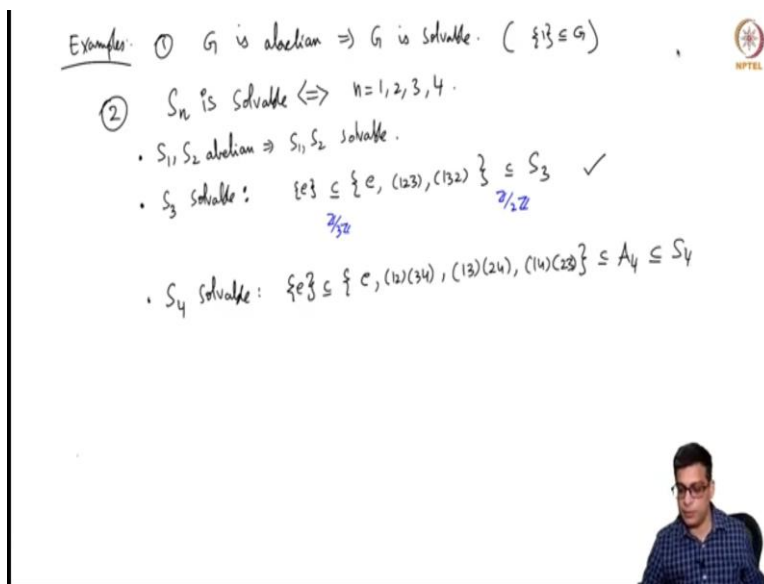 Examples: ① G is abelian ⇒ G is solvable. ( {1} ⊆ G )
NPTEL
② Sn is solvable <=> n=1,2,3,4.
• S1, S2 abelian ⇒ S1, S2 solvable.
• S3 solvable: {e} ⊆ {e, (123), (132)} ⊆ S3 ✓
Z/3Z Z/2Z
• S4 solvable: {e} ⊆ { e, (12)(34), (13)(24), (14)(23)} ⊆ A4 ⊆ S4